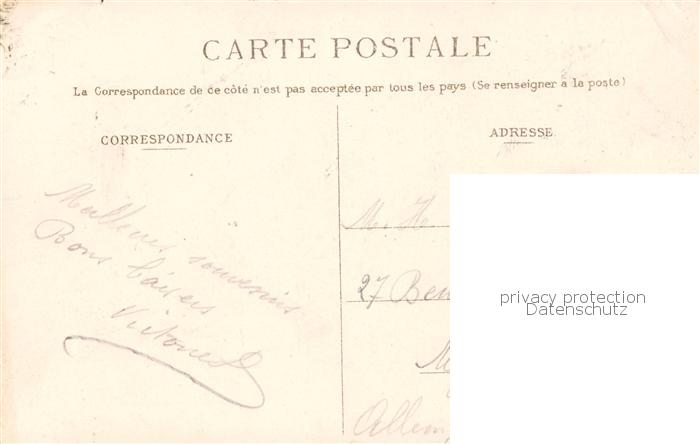 CARTE POSTALE
La Correspondance de ce côté n'est pas acceptée par tous les pays (Se renseigner à la poste)
CORRESPONDANCE
ADRESSE
Meilleurs souvenirs
Bons baisers
M. H
27 Ben
Allem
privacy protection
Datenschutz